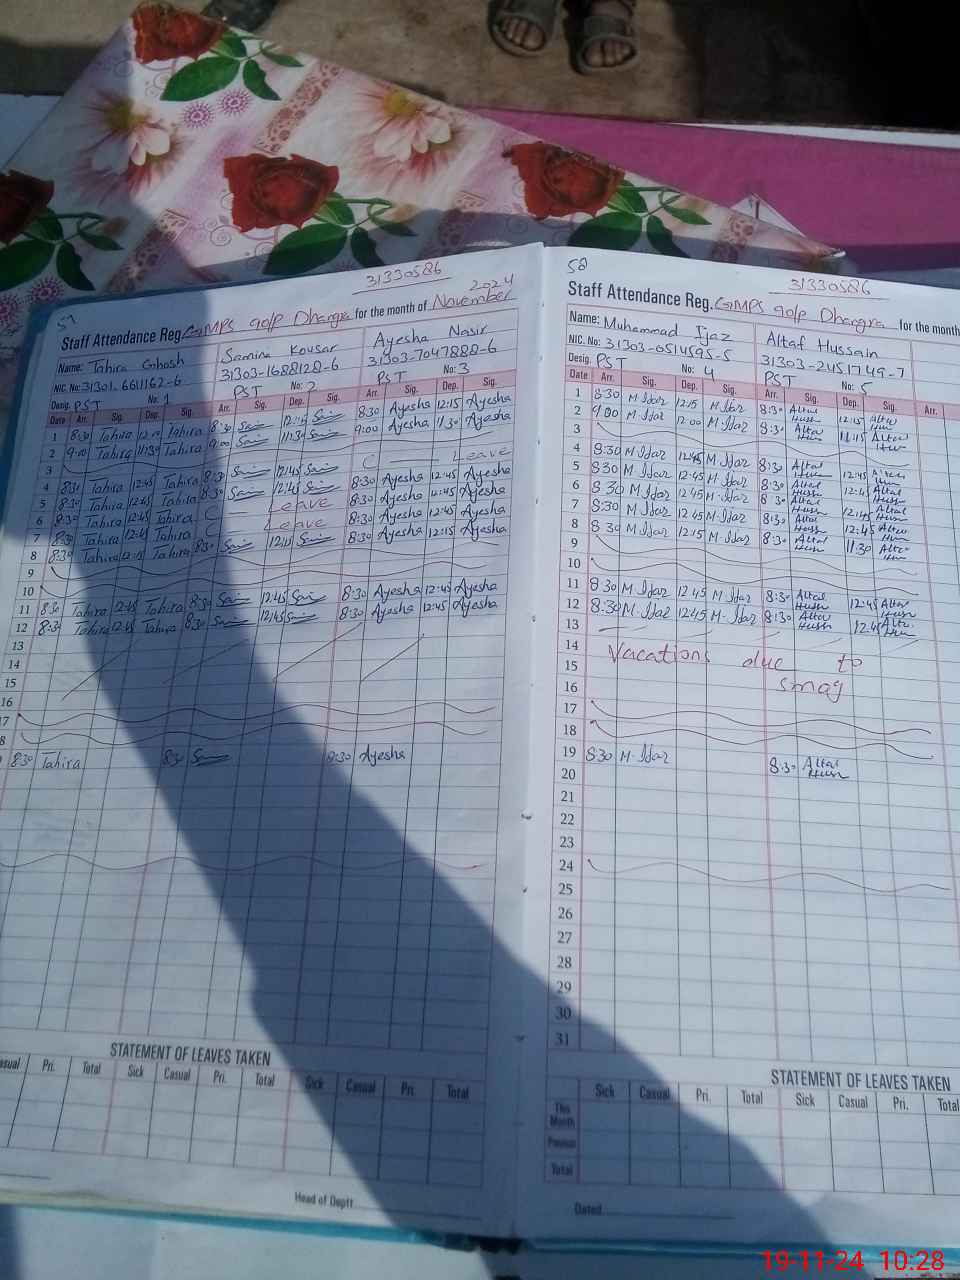 57
31330586
2024
Staff Attendance Reg. GMPS 90/P Dhangra for the month of November
Name: Tahira Gohosh Samina Kousar Ayesha Nasir
NIC. No: 31301-6611162-6 31303-1688128-6 31303-7047888-6
Desig. PST No: 1 PST No: 2 PST No: 3
Date Arr. Sig. Dep. Sig. Arr. Sig. Dep. Sig. Arr. Sig. Dep. Sig.
1 8:30 Tahira 12:15 Tahira 8:30 12:15 8:30 Ayesha 12:15 Ayesha
2 9:00 Tahira 11:30 Tahira 9:00 11:30 9:00 Ayesha 11:30 Ayesha
3
4 8:30 Tahira 12:45 Tahira 8:30 12:45 C Leave
5 8:30 Tahira 12:45 Tahira 8:30 12:45 8:30 Ayesha 12:45 Ayesha
6 8:30 Tahira 12:45 Tahira C Leave 8:30 Ayesha 12:45 Ayesha
7 8:30 Tahira 12:45 Tahira C Leave 8:30 Ayesha 12:45 Ayesha
8 8:30 Tahira 12:15 Tahira 8:30 12:15 8:30 Ayesha 12:15 Ayesha
9
10
11 8:30 Tahira 12:45 Tahira 8:30 12:45 8:30 Ayesha 12:45 Ayesha
12 8:30 Tahira 12:45 Tahira 8:30 12:45 8:30 Ayesha 12:45 Ayesha
13
14
15
16
17
8
8:30 Tahira 8:30 8:30 Ayesha
STATEMENT OF LEAVES TAKEN
Casual Pri. Total Sick Casual Pri. Total Sick Casual Pri. Total
Head of Deptt
58
31330586
Staff Attendance Reg. GMPS 90/P Dhangra for the month
Name: Muhammad Ijaz Altaf Hussain
NIC. No: 31303-0514595-5 31303-2451745-7
Desig. PST No: 4 PST No: 5
Date Arr. Sig. Dep. Sig. Arr. Sig. Dep. Sig. Arr.
1 8:30 M Ijaz 12:15 M Ijaz 8:30 Altaf Hussn 12:15 Altaf
2 9:00 M Ijaz 12:00 M Ijaz 8:30 Altaf Hussn 11:15 Altaf
3
4 8:30 M Ijaz 12:45 M Ijaz 8:30 Altaf Hussn 12:45
5 8:30 M Ijaz 12:45 M Ijaz 8:30 Altaf Hussn 12:45 Altaf
6 8:30 M Ijaz 12:45 M Ijaz 8:30 Altaf Hussn 12:45 Altaf
7 8:30 M Ijaz 12:45 M Ijaz 8:30 Altaf Hussn 12:45 Altaf
8 8:30 M Ijaz 12:15 M Ijaz 8:30 Altaf Hussn 11:30 Altaf
9
10
11 8:30 M Ijaz 12:45 M Ijaz 8:30 Altaf Hussn 12:45 Altaf
12 8:30 M Ijaz 12:45 M. Ijaz 8:30 Altaf Hussn 12:45 Altaf
13
14 Vacations due to
15 smog
16
17
18
19 8:30 M. Ijaz 8:30 Altaf Hussn
20
21
22
23
24
25
26
27
28
29
30
31
STATEMENT OF LEAVES TAKEN
Sick Casual Pri. Total Sick Casual Pri. Total
This Month
Previous
Total
Dated
19-11-24 10:28